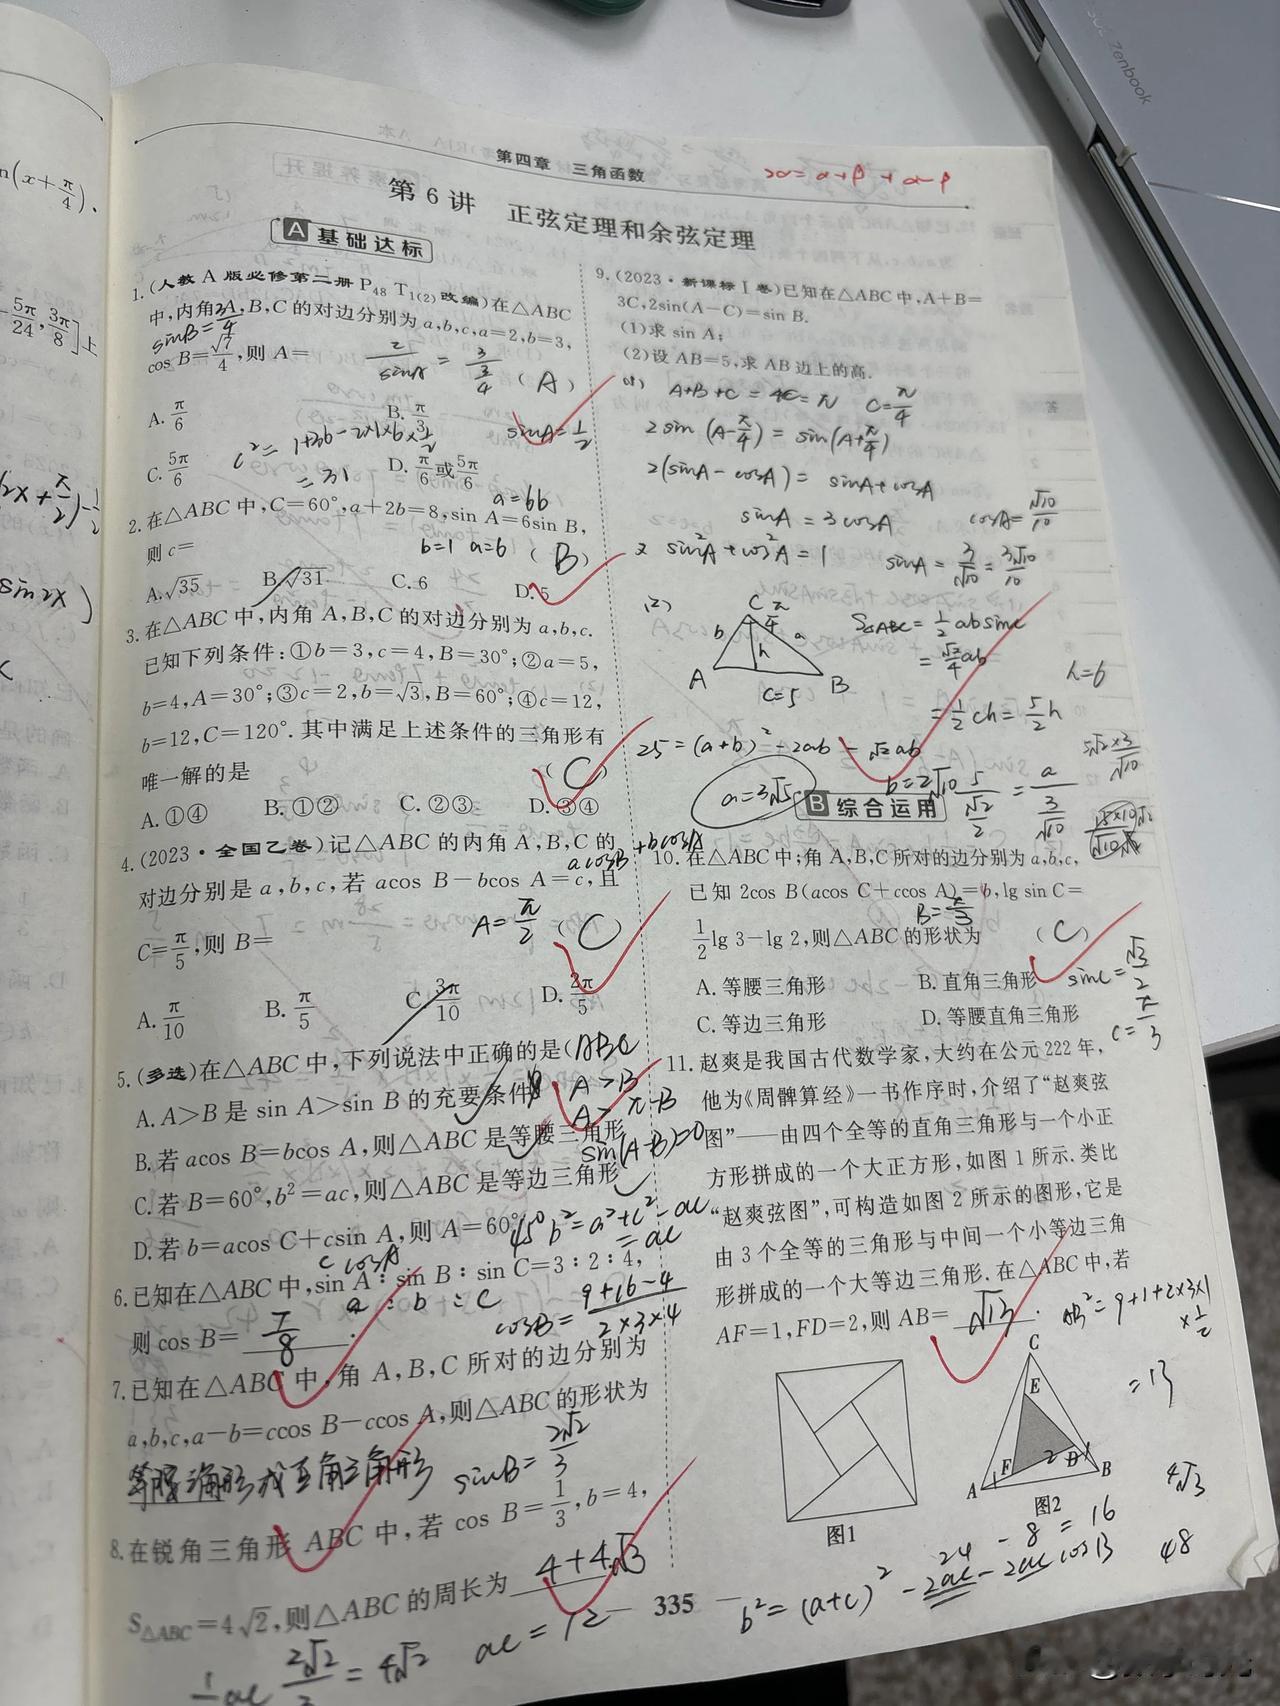 Zenbook
第四章 三角函数
2α=α+β+α-β
第 6 讲 正弦定理和余弦定理
A 基础达标
1.(人教 A 版必修第二册 P48 T1(2) 改编)在△ABC
中,内角A,B,C的对边分别为a,b,c,a=2,b=3,
sinB=3/4
cos B=√7/4,则 A=
2/sinA = 3/(3/4)
(A)
A. π/6
B. π/3
sinA=1/2
C. 5π/6
D. π/6或5π/6
c²=1+36-2×1×6×1/2
=31
a=6b
2.在△ABC 中,C=60°,a+2b=8,sin A=6sin B,
则 c=
b=1 a=6
(B)
A.√35 B.√31 C. 6 D. 5
3.在△ABC 中,内角 A,B,C 的对边分别为 a,b,c.
已知下列条件:①b=3,c=4,B=30°;②a=5,
b=4,A=30°;③c=2,b=√3,B=60°;④c=12,
b=12,C=120°.其中满足上述条件的三角形有
唯一解的是
(C)
A.①④ B.①② C.②③ D.③④
4.(2023·全国乙卷)记△ABC 的内角 A,B,C 的
acosB+bcosA
对边分别是 a,b,c,若 acos B-bcos A=c,且
C=π/5,则 B=
A=π/2
(C)
A. π/10 B. π/5 C. 3π/10 D. 2π/5
5.(多选)在△ABC 中,下列说法中正确的是(ABC
A.A>B 是 sin A>sin B 的充要条件
A>B
A>π-B
B.若 acos B=bcos A,则△ABC 是等腰三角形
sin(A-B)=0
C.若 B=60°,b²=ac,则△ABC 是等边三角形
D.若 b=acos C+csin A,则 A=60°
45° b²=a²+c²-ac
=ac
c cosA
6.已知在△ABC 中,sin A∶sin B∶sin C=3∶2∶4,
a : b : c
则 cos B= 7/8 .
cosB=(9+16-4)/(2×3×4)
7.已知在△ABC 中,角 A,B,C 所对的边分别为
a,b,c,a-b=ccos B-ccos A,则△ABC 的形状为
等腰三角形或直角三角形
sinB=2√2/3
8.在锐角三角形 ABC 中,若 cos B=1/3,b=4,
S△ABC=4√2,则△ABC 的周长为 4+4√3
1/2 ac 2√2/3 = 4√2
ac=12
9.(2023·新课标Ⅰ卷)已知在△ABC 中,A+B=
3C,2sin(A-C)=sin B.
(1)求 sin A;
(2)设 AB=5,求 AB 边上的高.
(1) A+B+C=4C=π C=π/4
2sin(A-π/4)=sin(A+π/4)
2(sinA-cosA)=sinA+cosA
sinA=3cosA
cosA=√10/10
又 sin²A+cos²A=1
sinA=3/√10=3√10/10
(2)
C π/4
b h a
A c=5 B
S△ABC=1/2 absinC
=√2/4 ab
=1/2 ch=5/2 h
h=6
25=(a+b)²-2ab-√2ab
a=3√5
b=2√10
5/(√2/2)=a/(3/√10)
5√2×3/√10
B 综合运用
10.在△ABC 中,角 A,B,C 所对的边分别为 a,b,c,
已知 2cos B(acos C+ccos A)=b,lg sin C=
B=π/3
1/2 lg 3-lg 2,则△ABC 的形状为
(C)
A.等腰三角形 B.直角三角形
C.等边三角形 D.等腰直角三角形
sinC=√3/2
C=π/3
11.赵爽是我国古代数学家,大约在公元 222 年,
他为《周髀算经》一书作序时,介绍了“赵爽弦
图”——由四个全等的直角三角形与一个小正
方形拼成的一个大正方形,如图 1 所示.类比
“赵爽弦图”,可构造如图 2 所示的图形,它是
由 3 个全等的三角形与中间一个小等边三角
形拼成的一个大等边三角形.在△ABC 中,若
AF=1,FD=2,则 AB= √13 .
AB²=9+1+2×3×1
×1/2
=13
C
E
F 2 D 1
A 1 B
图1
图2
4√3
24-8=16
48
b²=(a+c)²-2ac-2accosB
335